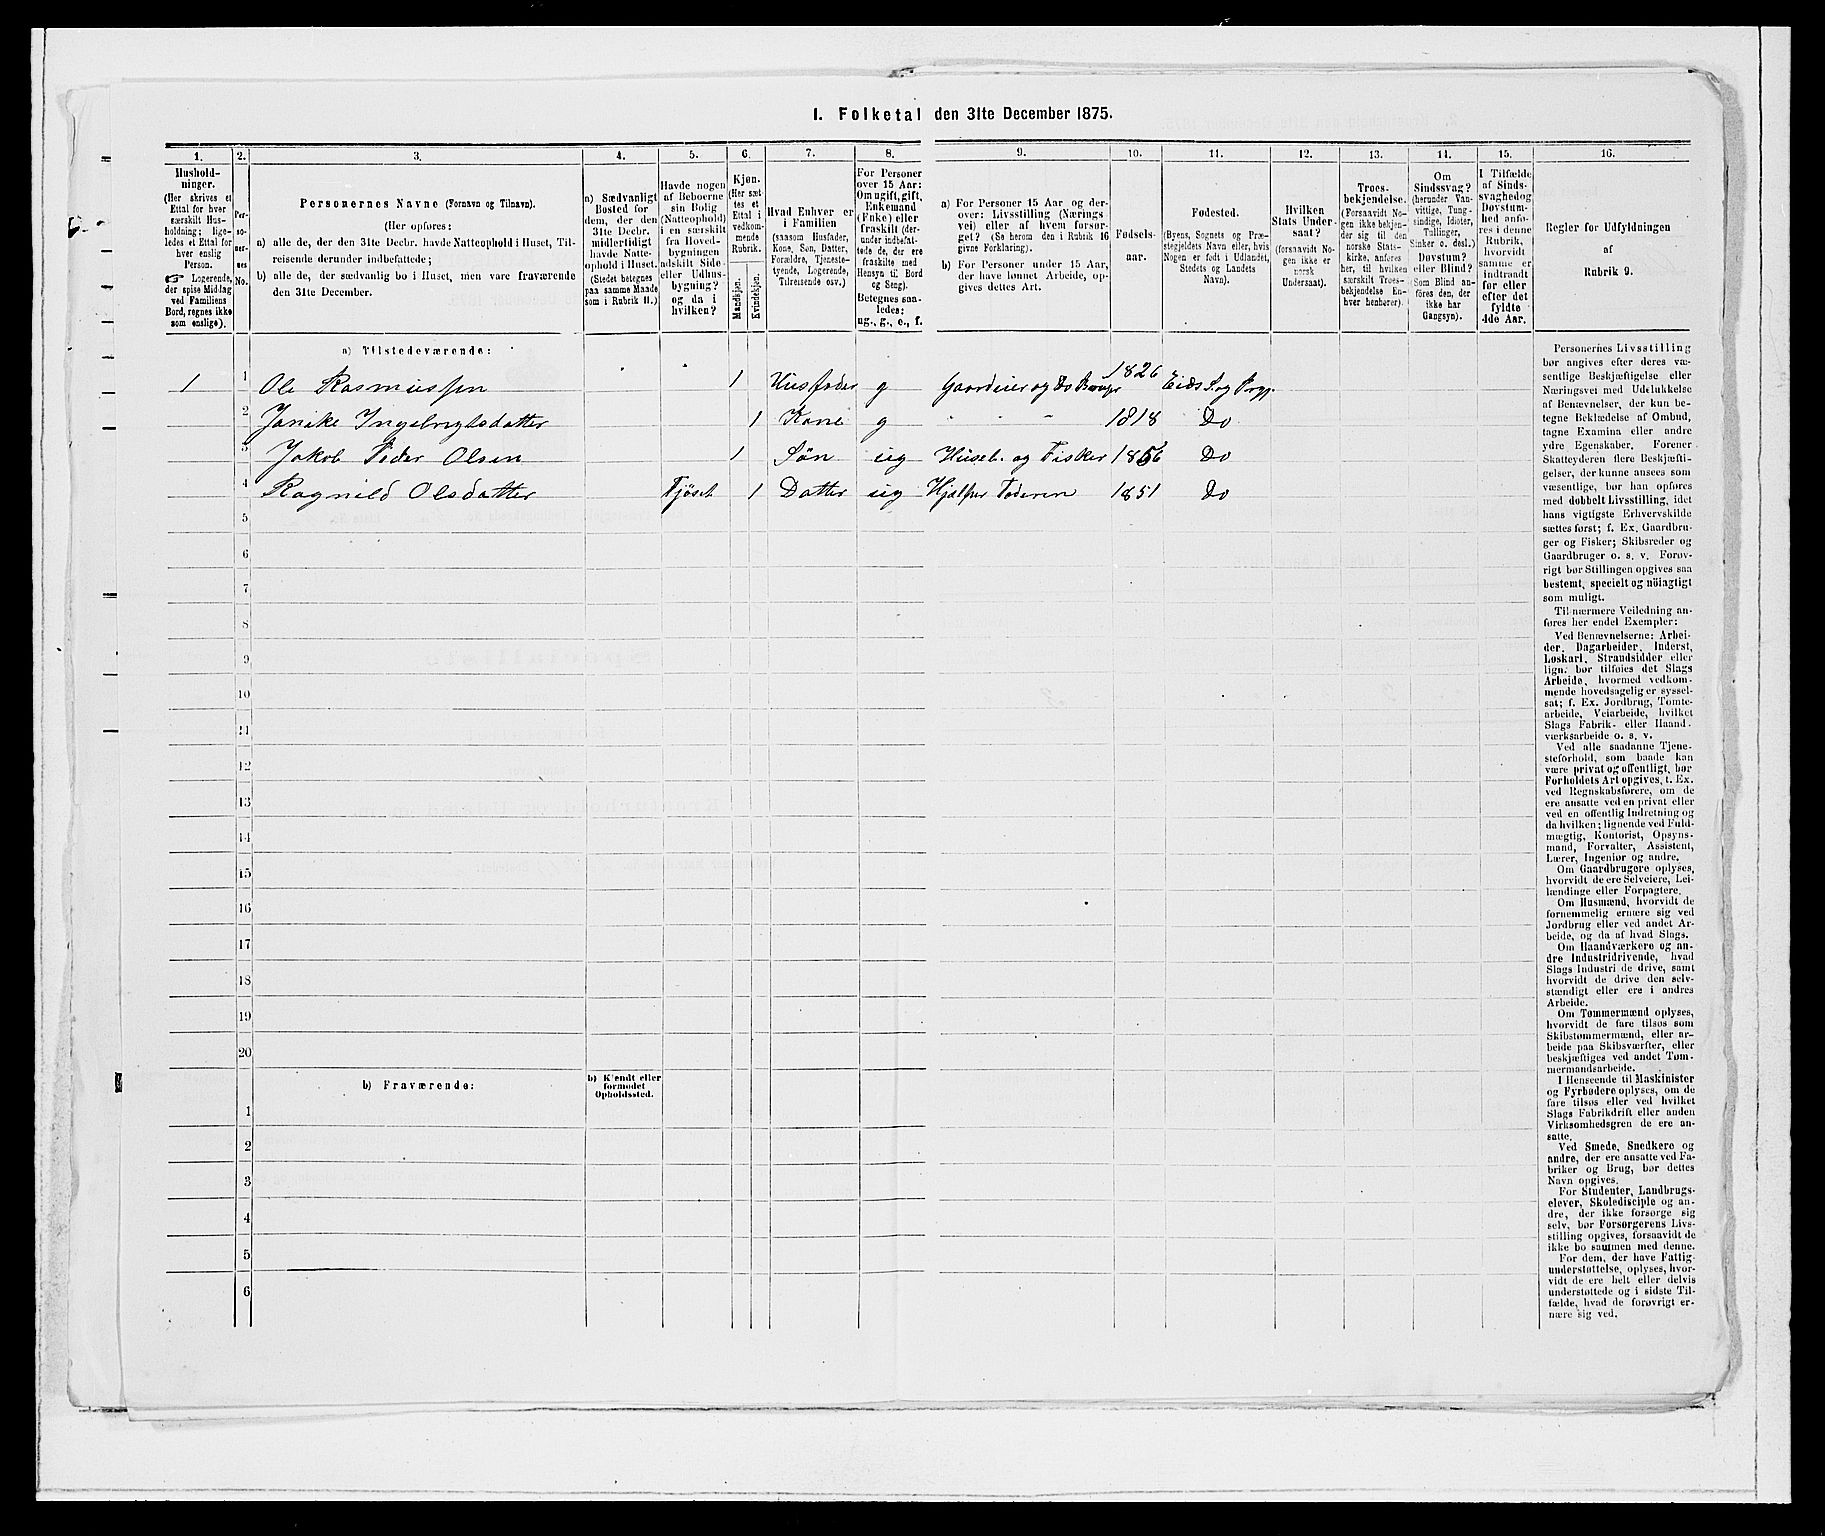 I. Folketal den 31te December 1875.
1. 2. 3. 4. 5. 6. 7. 8. 9. 10. 11. 12. 13. 14. 15. 16.
Hushold-
ninger.
(Her skrives et
Ettal for hver
særskilt Hus-
holdning; lige-
ledes et Ettal for
hver enslig
Person.
☞ Logerende,
der spise Middag
ved Familiens
Bord, regnes ikke
som enslige).
Per-
soner-
nes
No.
Personernes Navne (Fornavn og Tilnavn).
(Her opføres:
a) alle de, der den 31te Decbr. havde Natteophold i Huset, Til-
reisende derunder indbefattede;
b) alle de, der sædvanlig bo i Huset, men vare fraværende
den 31te December.
a) Sædvanligt
Bosted for
dem, der den
31te Decbr.
midlertidigt
havde Natte-
ophold i Huset.
(Stedet betegnes
paa samme Maade
som i Rubrik 11.)
Havde nogen
af Beboerne
sin Bolig
(Natteophold)
i en særskilt
fra Hoved-
bygningen
adskilt Side-
eller Udhus-
bygning?
og da i
hvilken?
Kjøn.
(Her sæt-
tes et
Ettal i
vedkom-
mende
Rubrik.
Mandkjøn.
Kvindekjøn.
Hvad Enhver er
i Familien
(saasom Husfader,
Kone, Søn, Datter,
Forældre, Tjeneste-
tyende, Logerende,
Tilreisende osv.)
For Personer
over 15 Aar:
Om ugift, gift,
Enkemand
(Enke) eller
fraskilt (der-
under indbefat-
tede de, der ere
fraskilte med
Hensyn til Bord
og Seng).
Betegnes saa-
ledes:
ug., g., e., f.
a) For Personer 15 Aar og der-
over: Livsstilling (Nærings-
vei) eller af hvem forsør-
get? (Se herom den i Rubrik 16
givne Forklaring).
b) For Personer under 15 Aar,
der have lønnet Arbeide, op-
gives dettes Art.
Fødsels-
aar.
Fødested.
(Byens, Sognets og Præ-
stegjeldets Navn eller, hvis
Nogen er født i Udlandet,
Stedets og Landets
Navn).
Hvilken
Stats Under-
saat?
(forsaavidt No-
gen ikke er
norsk
Undersaat).
Troes-
bekjendelse.
(Forsaavidt No-
gen ikke bekjen-
der sig til den
norske Stats-
kirke, anføres
her, til hvilken
særskilt Troes-
bekjendelse En-
hver henhører).
Om
Sindssvag?
(herunder Van-
vittige, Tung-
sindige, Idioter,
Tullinger,
Sinker o. desl.)
Døvstum?
eller Blind?
Som Blind an-
føres den, der
ikke har
Gangsyn).
I Tilfælde
af Sinds-
svaghed og
Døvstum-
hed anfø-
res i denne
Rubrik,
hvorvidt
samme er
indtraadt
før eller
efter det
fyldte
4de Aar.
Regler for Udfyldningen
af
Rubrik 9.
a) Tilstedeværende:
1 1 Ole Rasmussen 1 Husfader g Gaardeier og do Bruger 1826 Eids S. og Prgj.
2 Janike Ingebrigtsdatter 1 Kone g " " " 1818 Do
3 Jakob Peder Olsen 1 Søn ug Huseb. og Fisker 1856 Do
4 Ragnild Olsdatter Fjøset 1 Datter ug Hjelper Faderen 1851 Do
5
6
7
8
9
10
11
12
13
14
15
16
17
18
19
20
b) Fraværende:
b) Kjendt eller
formodet
Opholdssted.
1
2
3
4
5
6
Personernes Livsstilling
bør angives efter deres væ-
sentlige Beskjæftigelse eller
Næringsvei med Udelukkelse
af Benævnelser, der kun be-
tegne Beklædelse af Ombud,
tagne Examina eller andre
ydre Egenskaber. Forener
Skatteyderen flere Beskjæfti-
gelser, der kunne ansees som
væsentlige, bør han opføres
med dobbelt Livsstilling, idet
hans vigtigste Erhvervskilde
sættes først; f. Ex. Gaardbru-
ger og Fisker; Skibsreder og
Gaardbruger o. s. v. Forøv-
rigt bør Stillingen opgives saa
bestemt, specielt og nöiagtigt
som muligt.
Til nærmere Veiledning an-
føres her endel Exempler:
Ved Benævnelserne: Arbei-
der, Dagarbeider, Inderst,
Løskarl, Strandsidder eller
lign. bør tilføies det Slags
Arbeide, hvormed vedkom-
mende hovedsagelig er syssel-
sat; f. Ex. Jordbrug, Tomte-
arbeide, Veiarbeide, hvilket
Slags Fabrik- eller Haand-
værksarbeide o. s. v.
Ved alle saadanne Tjene-
steforhold, som baade kan
være privat og offentligt, bør
Forholdets Art opgives, t. Ex.
ved Regnskabsførere, om de
ere ansatte ved en privat eller
ved en offentlig Indretning og
da hvilken; lignende ved Fuld-
mægtig, Kontorist, Opsyns-
mand, Forvalter, Assistent,
Lærer, Ingeniør og andre.
Om Gaardbrugere oplyses,
hvorvidt de ere Selveiere, Lei-
lændinge eller Forpagtere.
Om Husmænd, hvorvidt de
fornemmelig ernære sig ved
Jordbrug eller ved andet Ar-
beide, og da af hvad Slags.
Om Haandværkere og an-
dre Industridrivende, hvad
Slags Industri de drive, samt
hvorvidt de drive den selv-
stændigt eller ere i andres
Arbeide.
Om Tømmermænd oplyses,
hvorvidt de fare tilsøs som
Skibstømmermænd, eller ar-
beide paa Skibsværfter, eller
beskjæftiges ved andet Tøm-
mermandsarbeide.
I Henseende til Maskinister
og Fyrbødere oplyses, om de
fare tilsøs eller ved hvilket
Slags Fabrikdrift eller anden
Virksomhedsgren de ere an-
satte.
Ved Smede, Snedkere og
andre, der ere ansatte ved Fa-
briker og Brug, bør dettes
Navn opgives.
For Studenter, Landbrugs-
elever, Skoledisciple og an-
dre, der ikke forsørge sig
selv, bør Forsørgerens Livs-
stilling opgives, forsaavidt de
ikke bo sammen med denne.
For dem, der have Fattig-
understøttelse, oplyses, hvor-
vidt de ere helt eller delvis
understøttede og i sidste Til-
fælde, hvad de forøvrigt er-
nære sig ved.